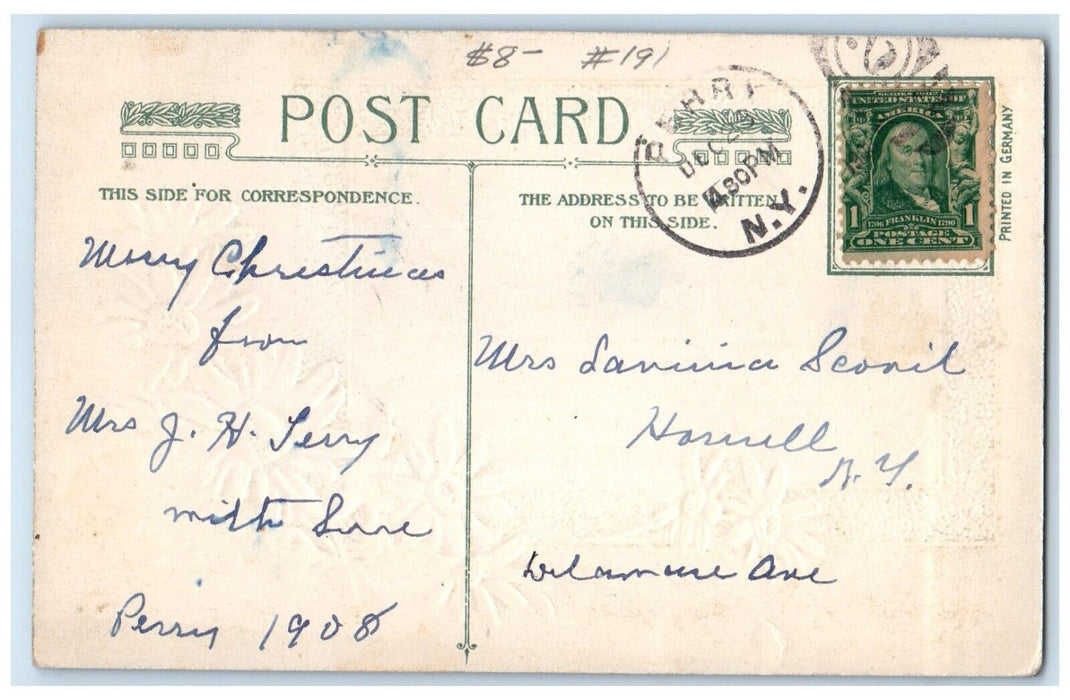 $8- #191
POST CARD
THIS SIDE FOR CORRESPONDENCE.
Merry Christmas
from
Mrs J. H. Terry
with Love
Perry 1908
THE ADDRESS TO BE WRITTEN
ON THIS SIDE.
Mrs Lavinia Scovil
Hornell
N.Y.
Delaware Ave
PERRY
DEC 23
430PM
N.Y.
UNITED STATES OF
AMERICA
1 1
1706 FRANKLIN 1790
POSTAGE
ONE CENT
PRINTED IN GERMANY